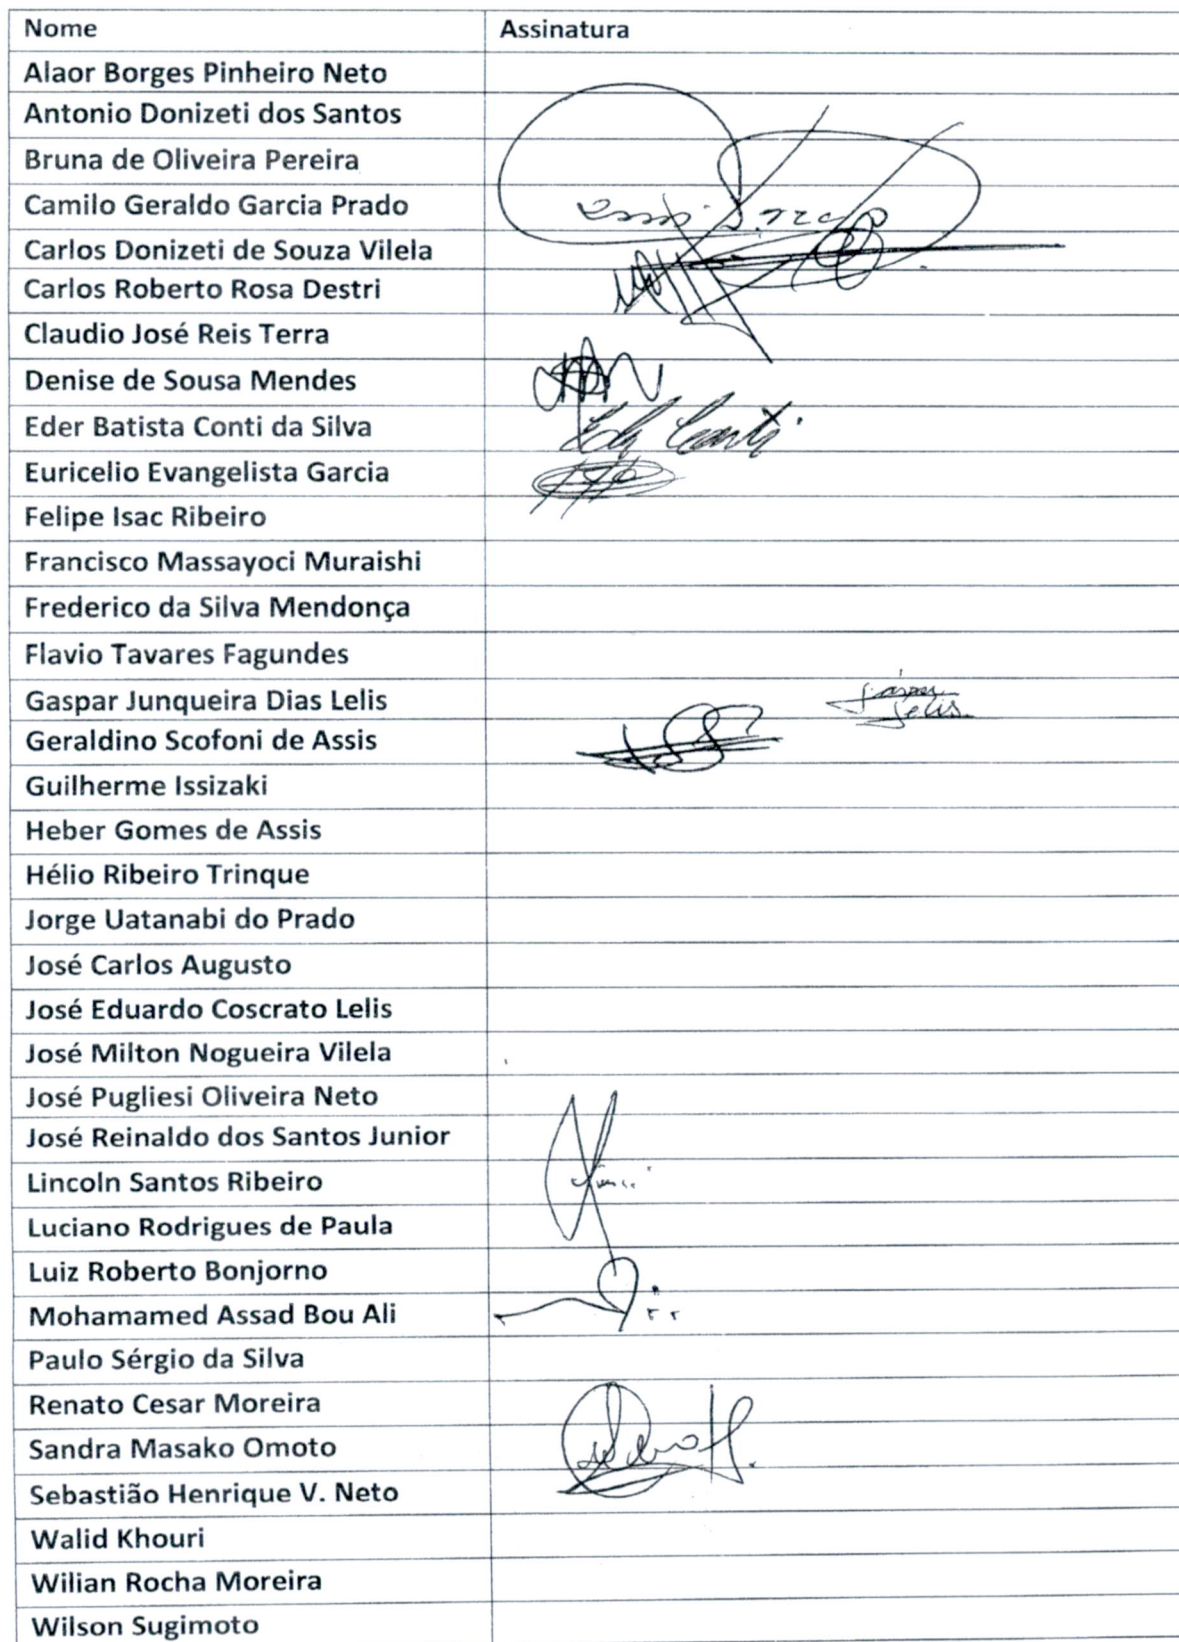 Nome Assinatura
Alaor Borges Pinheiro Neto
Antonio Donizeti dos Santos
Bruna de Oliveira Pereira
Camilo Geraldo Garcia Prado
Carlos Donizeti de Souza Vilela
Carlos Roberto Rosa Destri
Claudio José Reis Terra
Denise de Sousa Mendes
Eder Batista Conti da Silva Eder Conti
Euricelio Evangelista Garcia
Felipe Isac Ribeiro
Francisco Massayoci Muraishi
Frederico da Silva Mendonça
Flavio Tavares Fagundes
Gaspar Junqueira Dias Lelis Gáspar
Lelis
Geraldino Scofoni de Assis
Guilherme Issizaki
Heber Gomes de Assis
Hélio Ribeiro Trinque
Jorge Uatanabi do Prado
José Carlos Augusto
José Eduardo Coscrato Lelis
José Milton Nogueira Vilela
José Pugliesi Oliveira Neto
José Reinaldo dos Santos Junior
Lincoln Santos Ribeiro
Luciano Rodrigues de Paula
Luiz Roberto Bonjorno
Mohamamed Assad Bou Ali
Paulo Sérgio da Silva
Renato Cesar Moreira
Sandra Masako Omoto
Sebastião Henrique V. Neto
Walid Khouri
Wilian Rocha Moreira
Wilson Sugimoto